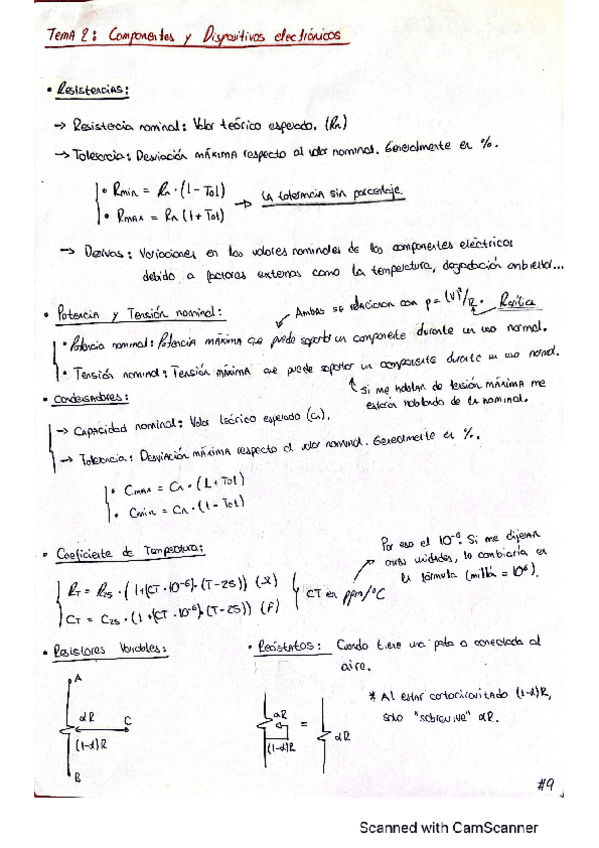 TEMA 2: Componentes y Dispositivos electrónicos
• Resistencias:
→ Resistencia nominal: Valor teórico esperado. (Rn)
→ Tolerancia: Desviación máxima respecto al valor nominal. Generalmente en %.
• Rmin = Rn · (1 - Tol)
• Rmax = Rn (1 + Tol)
→ La tolerancia sin porcentaje.
→ Derivas: Variaciones en los valores nominales de los componentes eléctricos
debido a factores externos como la temperatura, degradación ambiental...
• Potencia y Tensión nominal:
Ambas se relacionan con p = (V)²/R.
• Potencia nominal: Potencia máxima que puede soportar un componente durante un uso normal.
• Tensión nominal: Tensión máxima que puede soportar un componente durante un uso normal.
Si me hablan de tensión máxima me
estarán hablando de la nominal.
• Condensadores:
→ Capacidad nominal: Valor teórico esperado (Cn).
→ Tolerancia: Desviación máxima respecto al valor nominal. Generalmente en %.
• Cmax = Cn · (1 + Tol)
• Cmin = Cn · (1 - Tol)
• Coeficiente de Temperatura:
Por eso el 10⁻⁶. Si me dijeran
otras unidades, lo cambiaría en
la fórmula (millón = 10⁶).
RT = R25 · (1+(CT · 10⁻⁶)·(T-25)) (Ω)
CT = C25 · (1+(CT · 10⁻⁶)·(T-25)) (F)
CT en ppm/°C
• Resistores Variables:
A
αR
C
(1-α)R
B
• Reóstatos: Cuando tiene una pata no conectada al
aire.
αR
(1-α)R
=
αR
* Al estar cortocircuitado (1-α)R,
solo "sobrevive" αR.
#9
Scanned with CamScanner